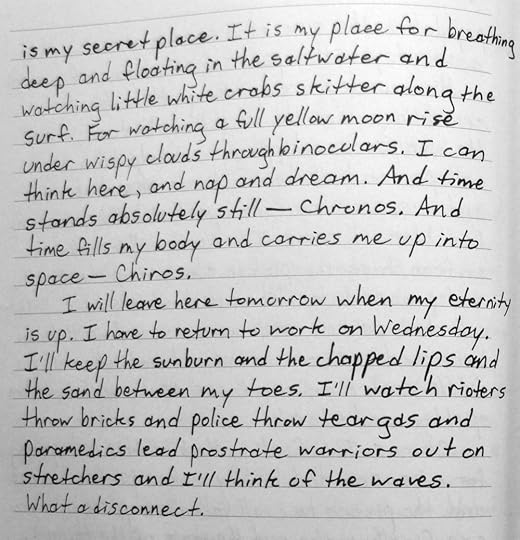 is my secret place. It is my place for breathing
deep and floating in the saltwater and
watching little white crabs skitter along the
surf. For watching a full yellow moon rise
under wispy clouds through binoculars. I can
think here, and nap and dream. And time
stands absolutely still — Chronos. And
time fills my body and carries me up into
space — Chiros.
I will leave here tomorrow when my eternity
is up. I have to return to work on Wednesday.
I'll keep the sunburn and the chapped lips and
the sand between my toes. I'll watch rioters
throw bricks and police throw tear gas and
paramedics lead prostrate warriors out on
stretchers and I'll think of the waves.
What a disconnect.